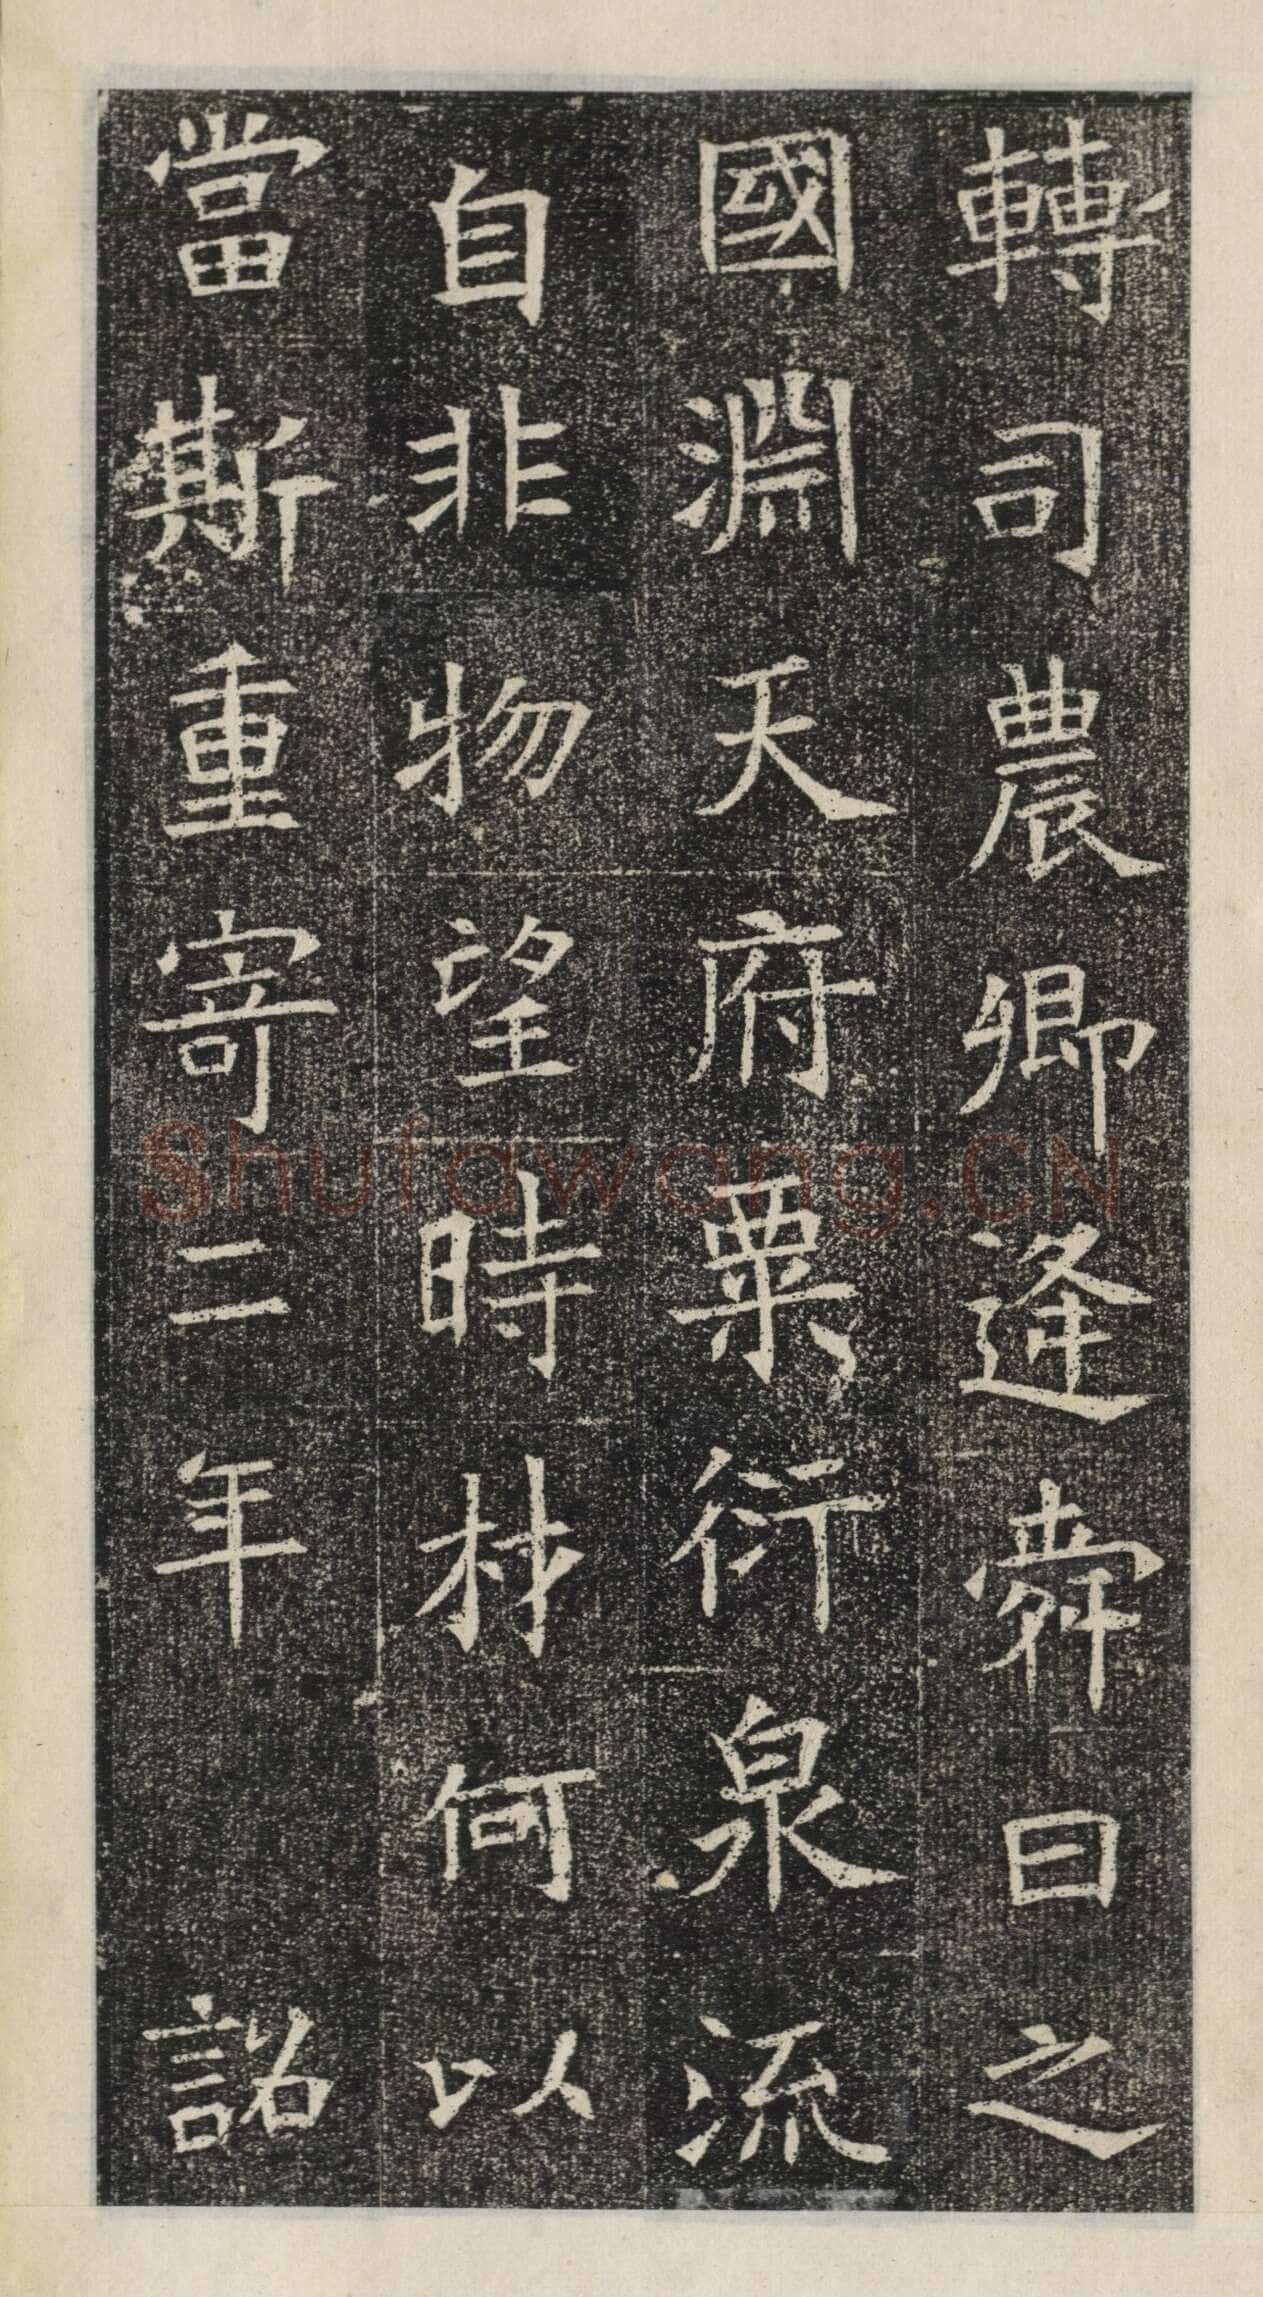 轉司農卿逢舜日之
國淵天府粟衍泉流
自非物望時材何以
當斯重寄二年詔
Shufawang.CN